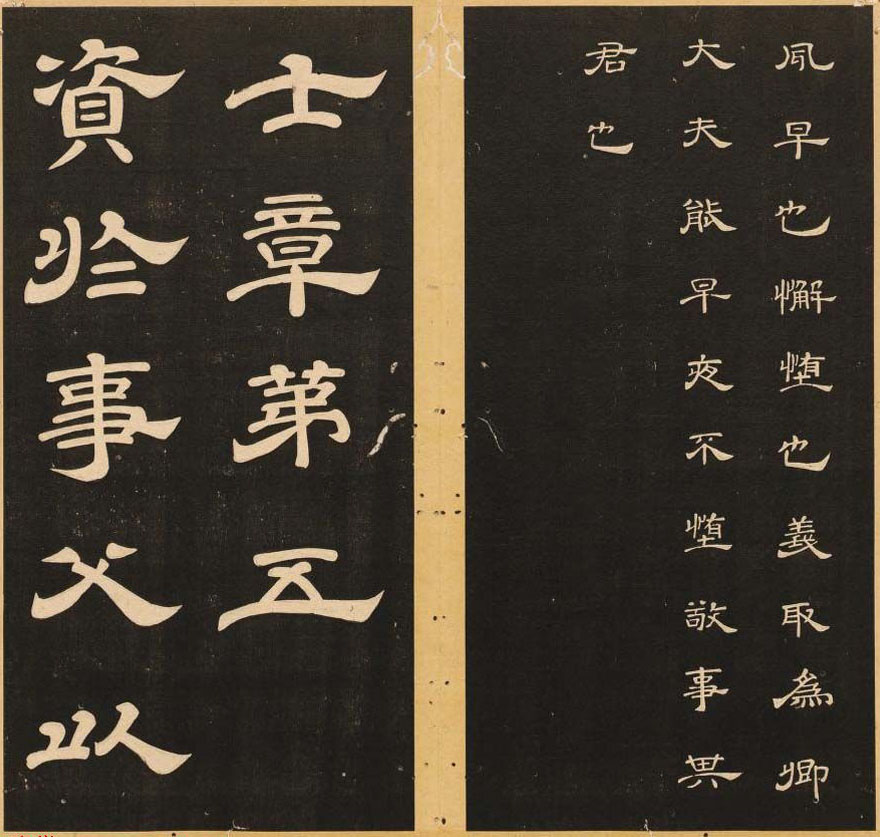 夙早也懈惰也義取爲卿
大夫能早夜不惰敬事其
君也
士章第五
資於事父以